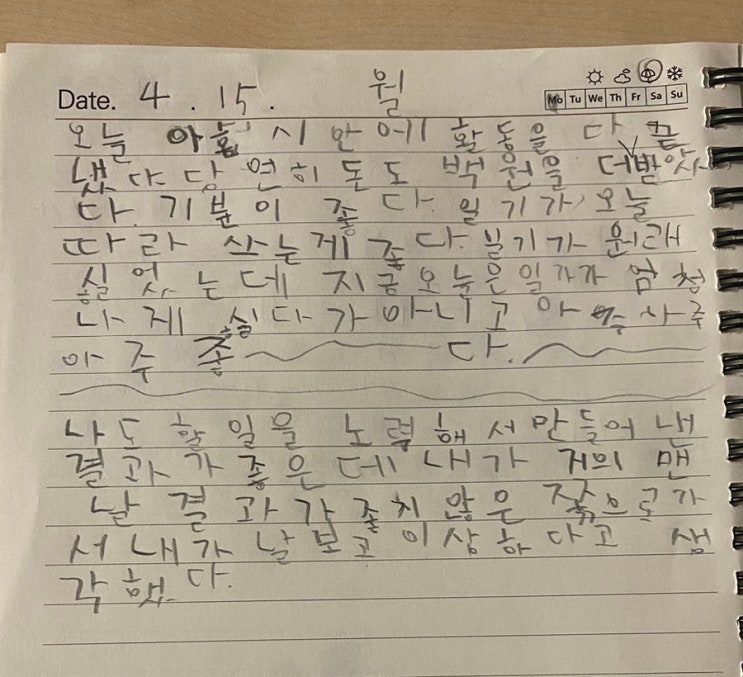 Date. 4 . 15 . 월
Mo Tu We Th Fr Sa Su
오늘 아홉 시 안에 활동을 다 끝
냈다 당연히 돈도 백원을 더 받았
다. 기분이 좋다. 일기가 오늘
따라 쓰는게 좋다. 일기가 원래
싫었는데 지금 오늘은 일기가 엄청
나게 싫다가 아니고 아주
아주 좋 다.
나도 할 일을 노력해서 만들어 낸
결과가 좋은데 내가 거의 맨
날 결과가 좋치 않은 쪾으로 가
서 내가 날 보고 이상하다고 생
각했다.